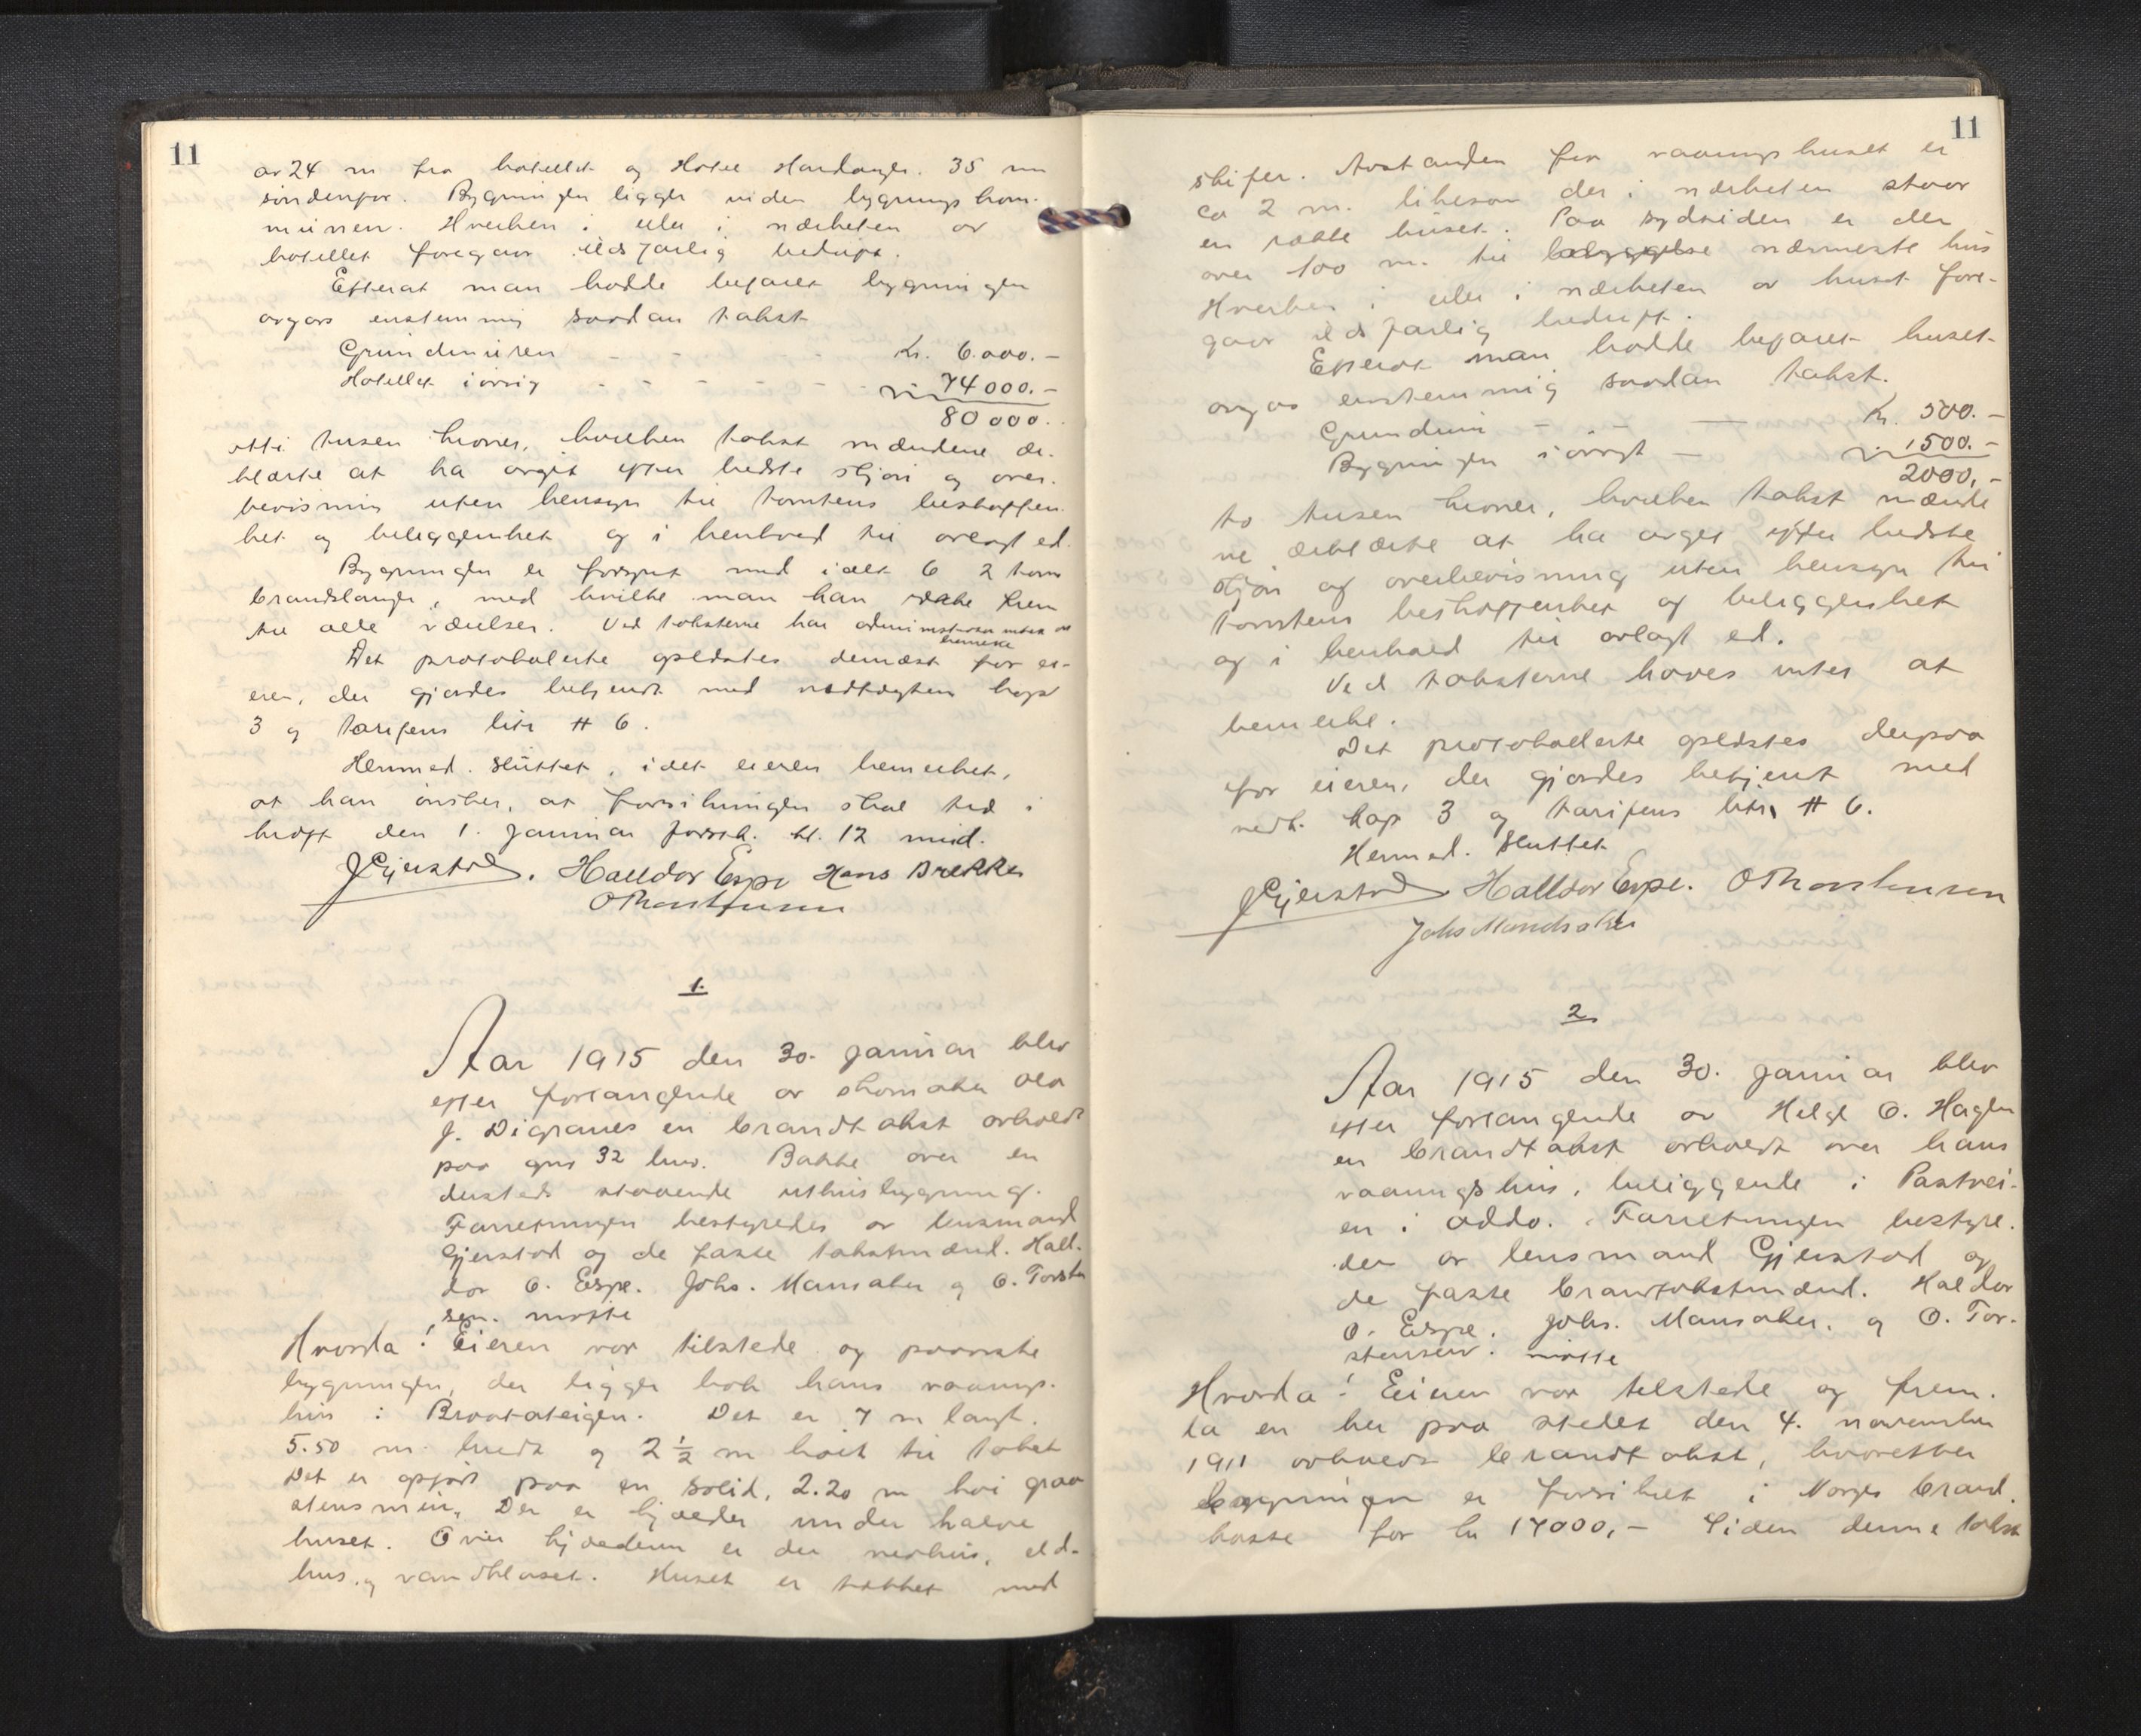 11
av 24 m fra hotellet og Hotel Hardanger. 35 m
søndenfor. Bygningen ligger uten bygningskom-
munen. Hverken i eller i nærheten av
hotellet foregaar ildsfarlig bedrift.
Efterat man hadde befaret bygningen
avgavs enstemmig saadan takst
Grundmuren - - - - Kr. 6.000.-
Hotellet iøvrig - - - - - - 74000.-
80000.
otti tusen kroner, hvilken takst mændene er-
klærte at ha avgit efter bedste skjøn og over-
bevisning uten hensyn til tomtens beskaffen-
het og beliggenhet og i henhold til avlagt ed.
Bygningen er forsynt med ialt 6 2 toms
brandslanger, med hvilke man kan række frem
til alle værelser. Ved taksterne har administrator intet at
bemerke
Det protokolerte oplæstes dernæst for ei-
eren, der gjordes bekjendt med vedtægtens kap
3 og tarifens litr # 6.
Hermed sluttet, idet eieren bemerket,
at han ønsker, at forsikringen skal træ i
kraft den 1. januar førstk. kl. 12 mid.
JGjerstad. Halldor Espe Hans Brekke
O Thorstensen
1.
Aar 1915 den 30. januar blev
efter forlangende av skomaker Ola
J. Digranes en brandtakst avholdt
paa gnr 32 bnr. Bakke over en
dersteds staaende uthusbygning.
Forretningen bestyredes av lensmand
Gjerstad og de faste takstmænd. Hall-
dor O. Espe. Johs. Mansaker og O. Torsten
sen. møtte
Hvorda! Eieren var tilstede og paaviste
bygningen, der ligger bak hans vaanings-
hus i Braatateigen. Det er 7 m langt.
5.50 m. bredt og 2 ½ m høit til taket
Det er opført paa en solid, 2.20 m høi graa
stensmur. Der er kjælder under halve
huset. Over kjælderen er der vedhus, ild-
hus og vandkloset. Huset er tækket med
11
skifer. Avstanden fra vaaningshuset er
ca 2 m. likesom der i nærheten staar
en række huset. Paa sydsiden er der
over 100 m. til bebyggelse nærmeste hus
Hverken i eller i nærheten av huset fore-
gaar ildsfarlig bedrift.
Efterat man hadde befaret huset
avgavs enstemmig saadan takst.
Grundmur - - - Kr. 500.-
Bygningen iøvrigt - 1500.-
2000,-
to tusen kroner, hvilken takst mænde
ne erklærte at ha avgit efter bedste
skjøn og overbevisning uten hensyn til
tomtens beskaffenhet og beliggenhet
og i henhold til avlagt ed.
Ved taksterne haves intet at
bemerke.
Det protokollerte oplæstes derpaa
for eieren, der gjordes bekjent med
vedt. kap 3 og tarifens litr. # 6.
Hermed. sluttet
JGjerstad Halldor Espe. O Thorstensen
Johs Mandsaker
2.
Aar 1915 den 30. januar blev
efter forlangende av Helge O. Hagen
en brandtakst avholdt over hans
vaaningshus, beliggende i Pastvei-
en i Odda. Forretningen bestyre-
des av lensmand Gjerstad og
de faste brandtakstmænd. Haldor
O. Espe. Johs. Mansaker. og O. Tor-
stensen. møtte
Hvorda! Eieren var tilstede og frem-
la en her paa stedet den 4. november
1911 avholdt brandtakst, hvorefter
bygningen er forsikret i Norges brand
kasse for kr 17000,- Siden denne takst